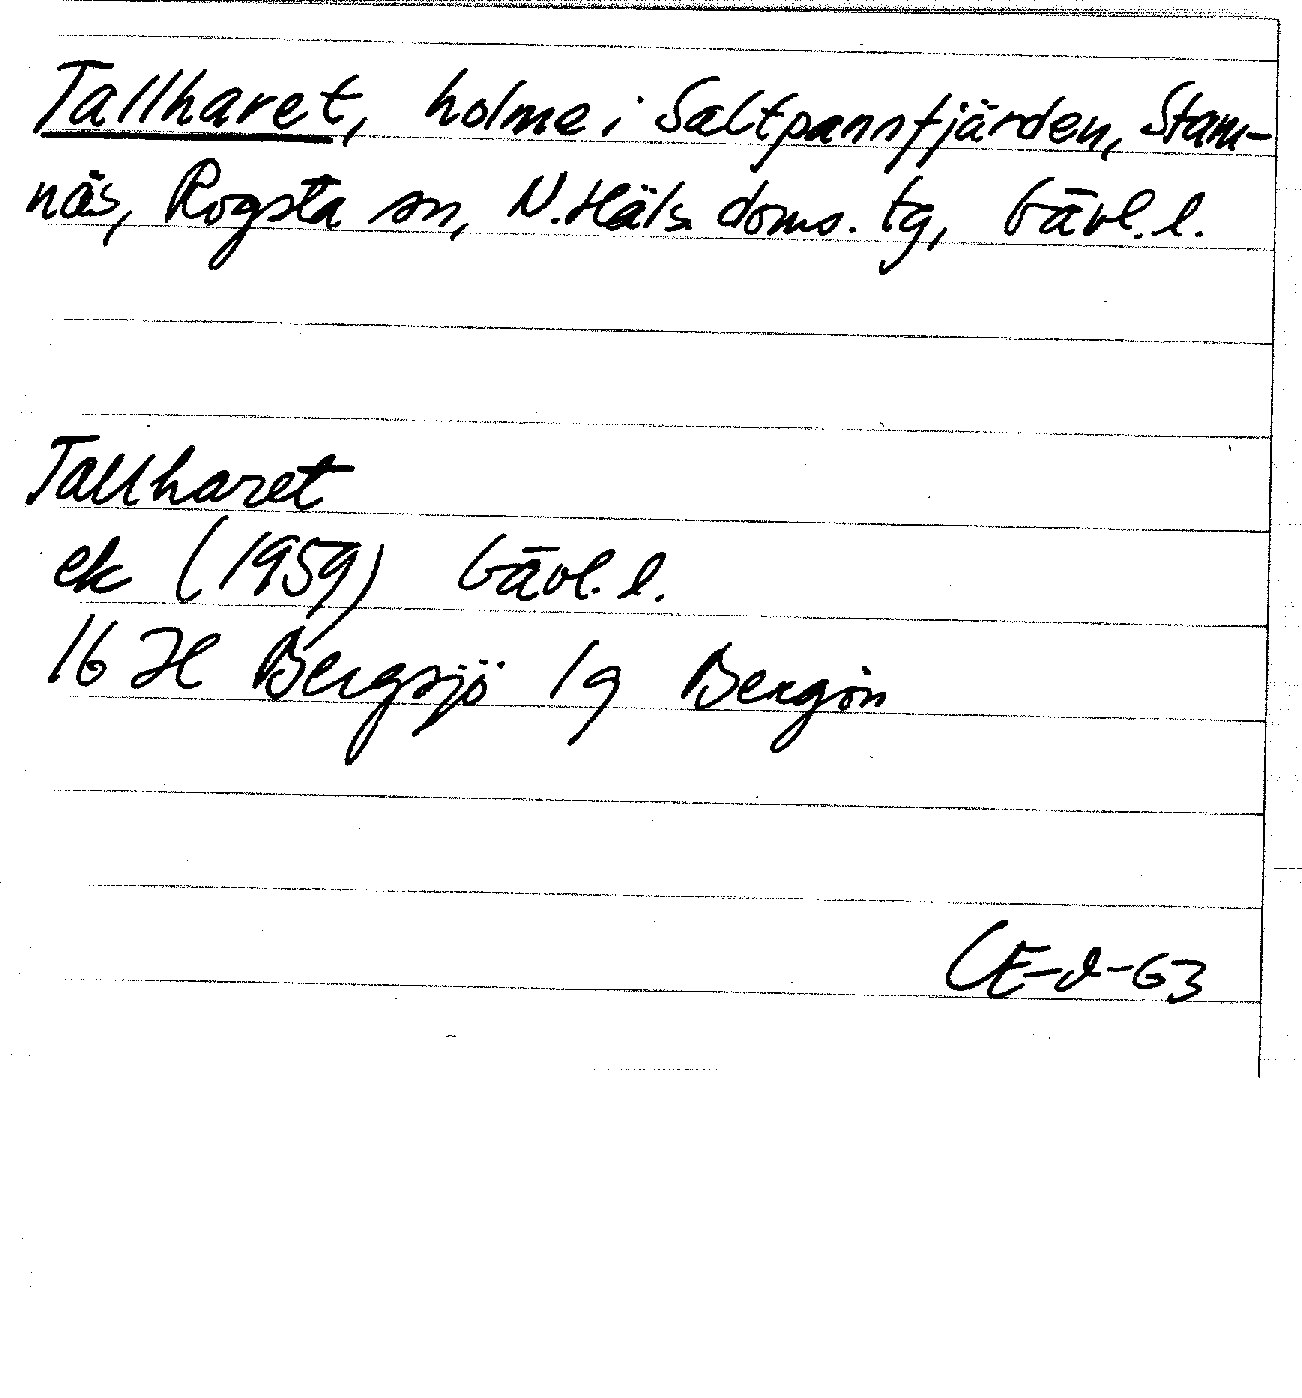 Tallharet, holme i Saltpannfjärden, Stam-
näs, Rogsta sn, N.Häls. doms. tg, Gävl. l.
Tallharet
ek (1959) Gävl. l.
16 H Bergsjö 1g Bergön
CE-d-63